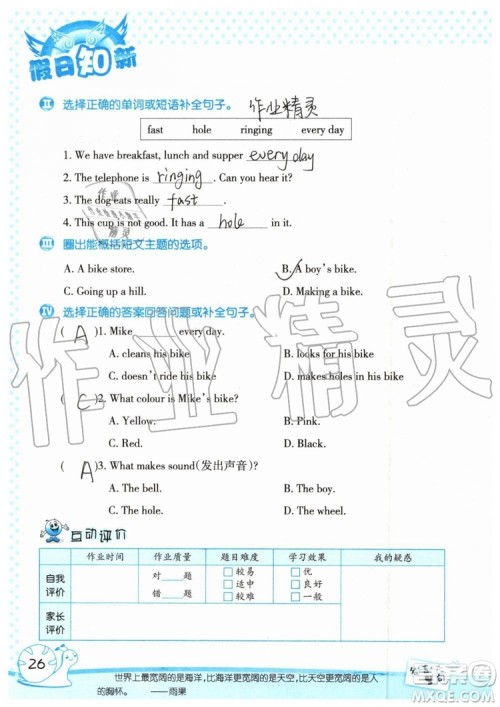 假日知新
Ⅱ 选择正确的单词或短语补全句子。 作业精灵
fast hole ringing every day
1. We have breakfast, lunch and supper every day.
2. The telephone is ringing. Can you hear it?
3. The dog eats really fast.
4. This cup is not good. It has a hole in it.
Ⅲ 圈出能概括短文主题的选项。
A. A bike store. B. A boy's bike.
C. Going up a hill. D. Making a bike.
Ⅳ 选择正确的答案回答问题或补全句子。
( A )1. Mike ____ every day.
A. cleans his bike B. looks for his bike
C. doesn't ride his bike D. makes holes in his bike
( C )2. What colour is Mike's bike?
A. Yellow. B. Pink.
C. Red. D. Black.
( A )3. What makes sound(发出声音)?
A. The bell. B. The hole.
C. The horn. D. The wheel.
作业精灵
互动评价
作业时间 作业质量 题目难度 学习效果 我的疑惑
自我评价 对____题 错____题 □较易 □适中 □较难 □优 □良好 □一般
家长评价
26
世界上最宽阔的是海洋,比海洋更宽阔的是天空,比天空更宽阔的是人
的胸怀。 ——雨果
MXQE.COM